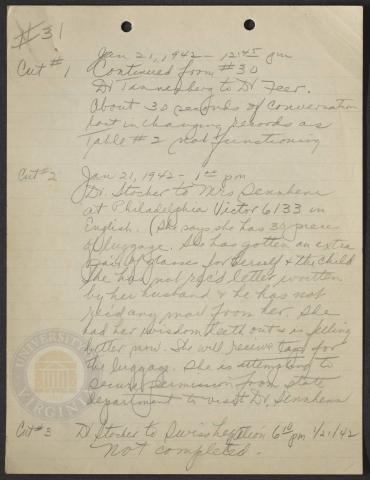 #31
Jan 21, 1942 - 12:45 pm
Cut #1 Continued from #30
Dr Tannenberg to Dr Feer.
About 30 seconds of conversation
lost in changing records as
Table #2 not functioning
Cut #2 Jan 21, 1942 - 1:00 pm
Dr. Stocher to Mrs
at Philadelphia Victor 6133 in
English. (She says she has 30 pieces
of luggage. She has gotten an extra
pair of glasses for herself & the child
She has not rec'd letter written
by her husband & he has not
rec'd any mail from her. She
had her wisdom teeth out & is feeling
better now. She will receive tags for
the luggage. She is attempting to
secure permission from State
department to visit Dr.
Cut #3 Dr Stocher to Swiss Legation 6:10 pm 1/21/42
Not completed.
UNIVERSITY
VIRGINIA